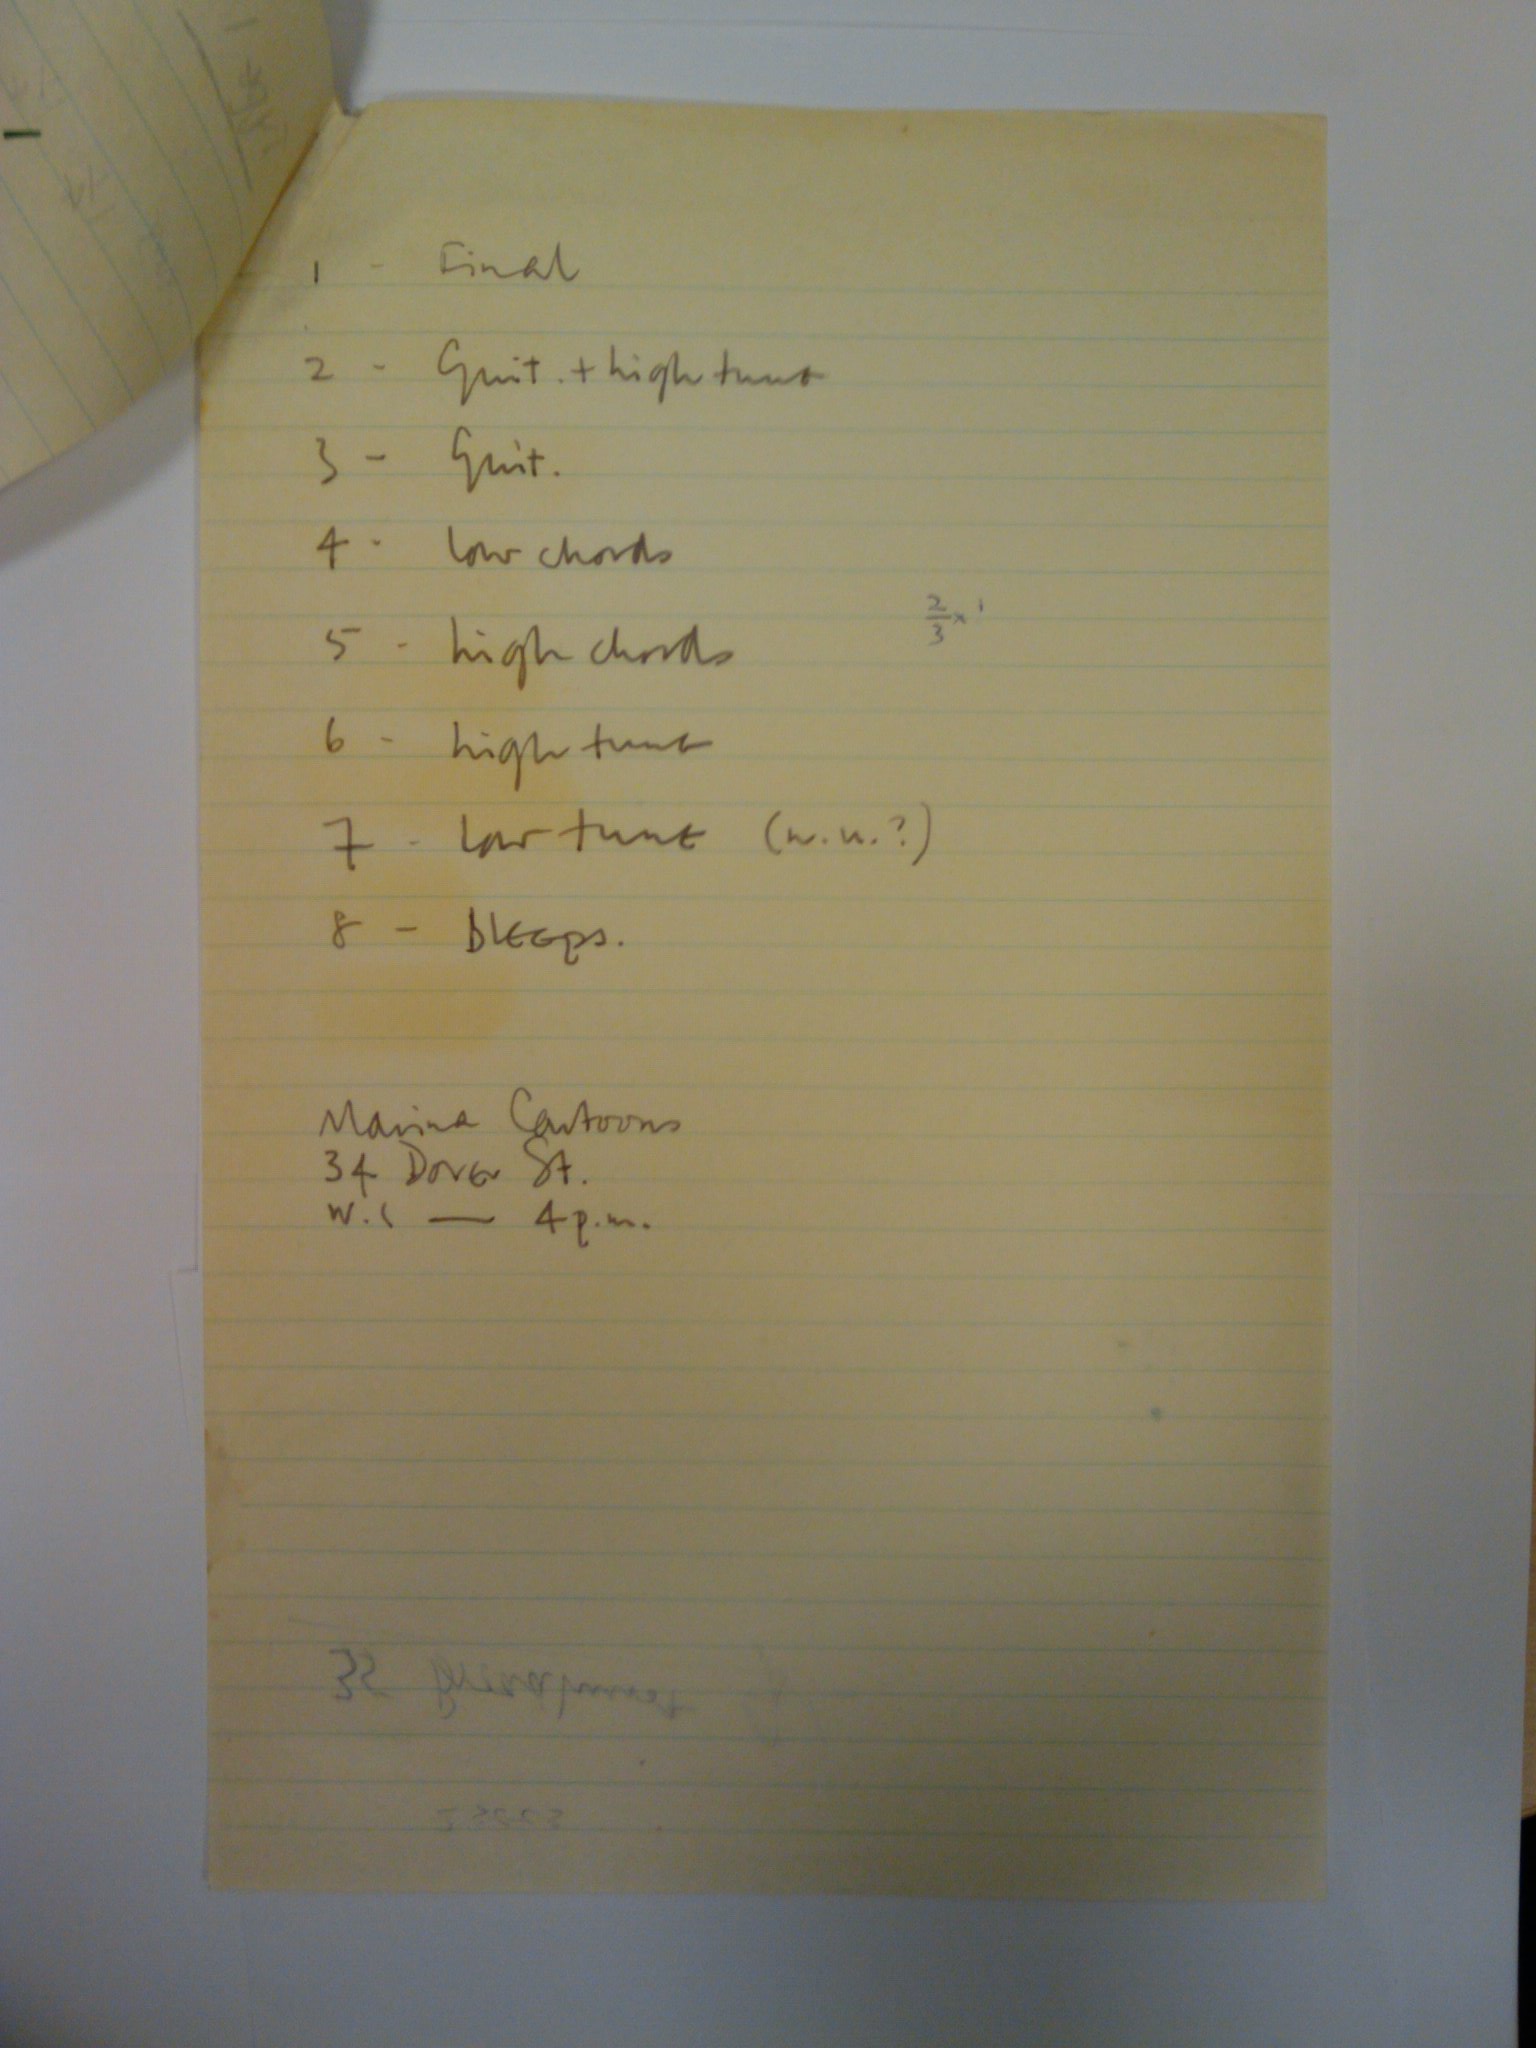 1 - Final
2 - Guit. + high tune
3 - Guit.
4 - low chords
2/3 x 1
5 - high chords
6 - high tune
7 - low tune (w.n.?)
8 - bleeps.
Marina Cartoons
34 Dover St.
W.1 — 4 p.m.